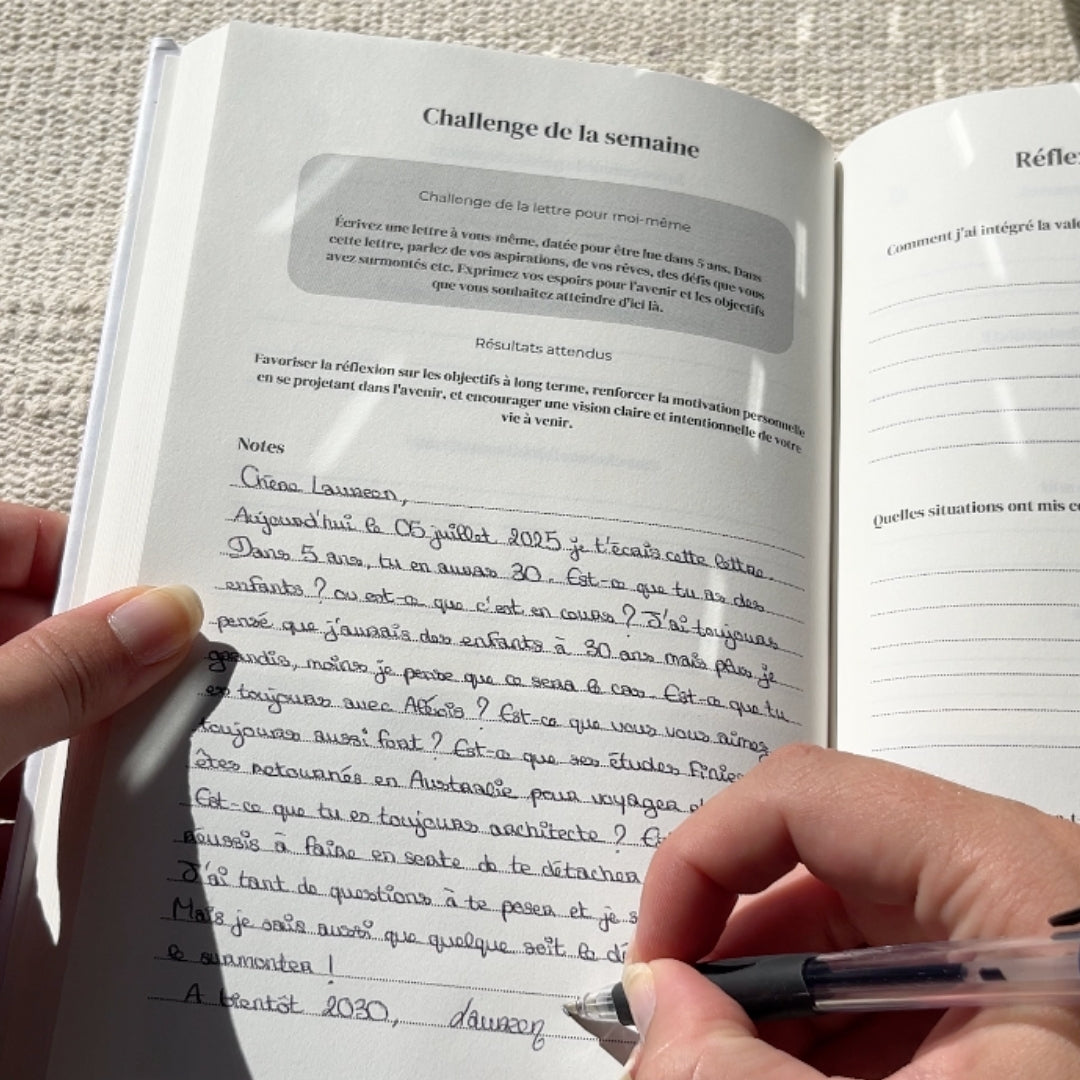 Challenge de la semaine
Challenge de la lettre pour moi-même
Écrivez une lettre à vous-même, datée pour être lue dans 5 ans. Dans
cette lettre, parlez de vos aspirations, de vos rêves, des défis que vous
avez surmontés etc. Exprimez vos espoirs pour l'avenir et les objectifs
que vous souhaitez atteindre d'ici là.
Résultats attendus
Favoriser la réflexion sur les objectifs à long terme, renforcer la motivation personnelle
en se projetant dans l'avenir, et encourager une vision claire et intentionnelle de votre
vie à venir.
Notes
Chère Laureen,
Aujourd'hui le 05 juillet 2025 je t'écris cette lettre.
Dans 5 ans, tu en auras 30. Est-ce que tu as des
enfants ? ou est-ce que c'est en cours ? J'ai toujours
pensé que j'aurais des enfants à 30 ans mais plus je
grandis, moins je pense que ce sera le cas. Est-ce que tu
es toujours avec Alexis ? Est-ce que vous vous aimez
toujours aussi fort ? Est-ce que ses études finies
êtes retournés en Australie pour voyager
Est-ce que tu es toujours architecte ?
réussis à faire en sorte de te détacher
J'ai tant de questions à te poser et je
Mais je sais aussi que quelque soit le
le surmonter !
A bientôt 2030, Laureen
Comment j'ai intégré la
Quelles situations ont mis